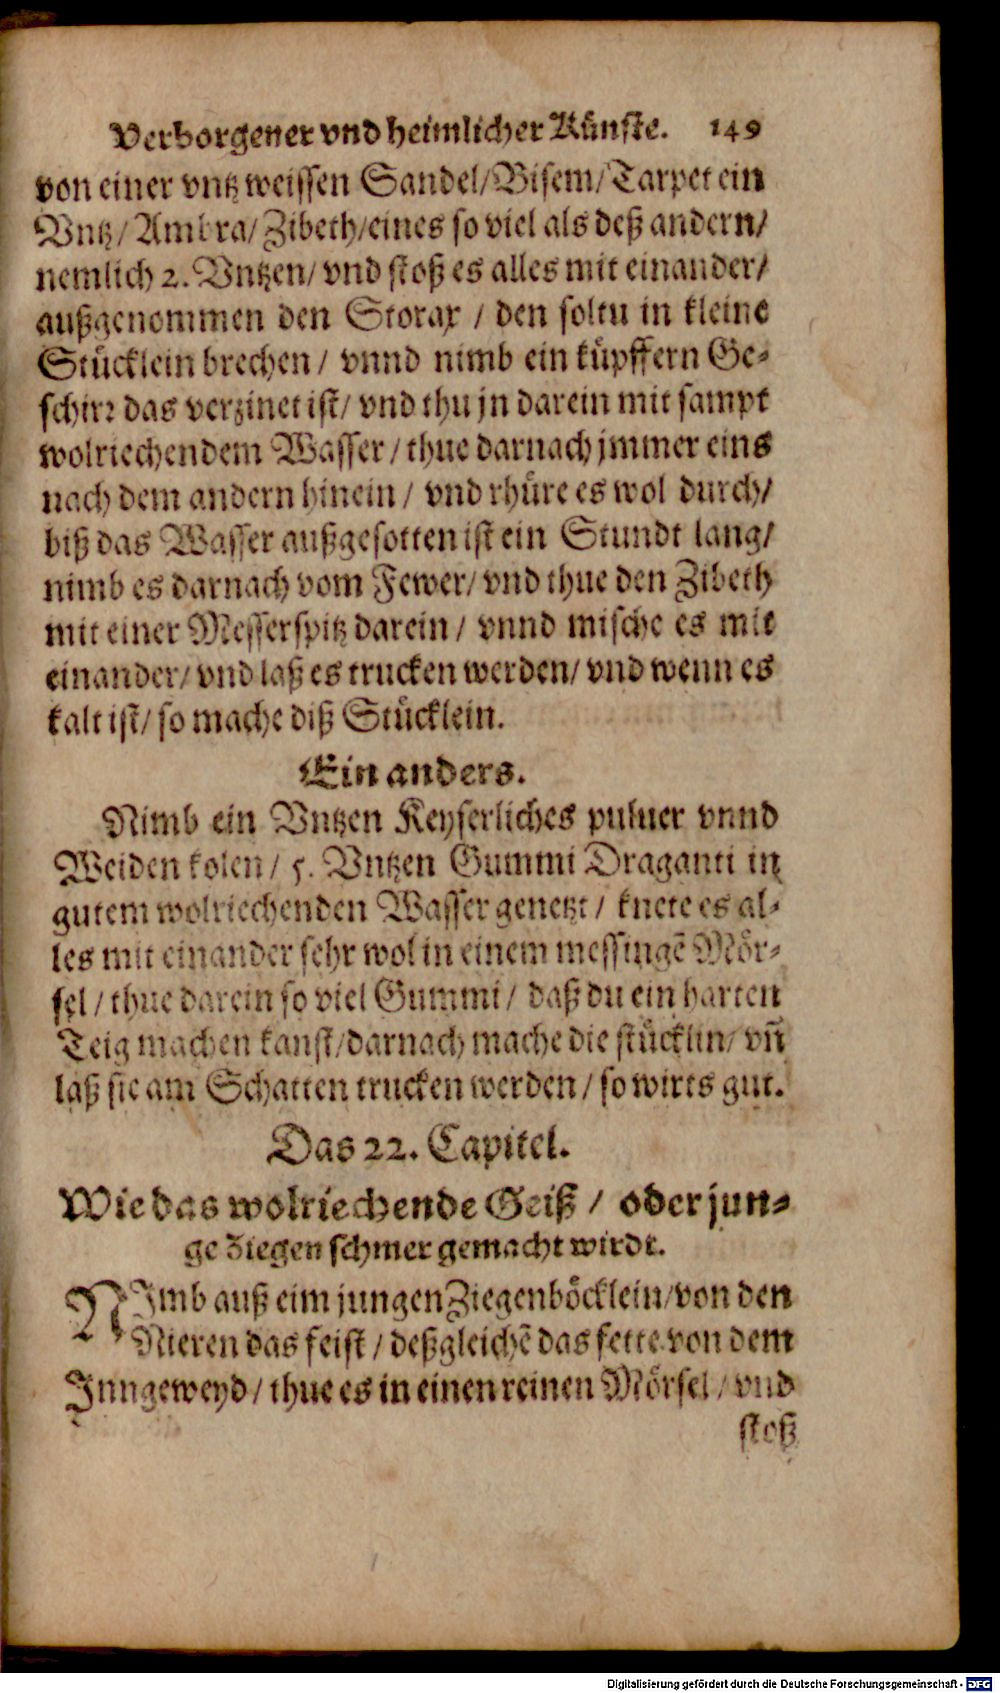 Verborgener vnd heimlicher Künste. 149
von einer vntz weissen Sandel/ Bisem/ Tarpet ein
Vntz/ Ambra/ Zibeth/ eines so viel als deß andern/
nemlich 2. Vntzen/ vnd stoß es alles mit einander/
außgenommen den Storax / den soltu in kleine
Stücklein brechen/ vnnd nimb ein küpffern Ge-
schirr das verzinet ist/ vnd thu jn darein mit sampt
wolriechendem Wasser/ thue darnach jmmer eins
nach dem andern hinein/ vnd rhüre es wol durch/
biß das Wasser außgesotten ist ein Stundt lang/
nimb es darnach vom Fewer/ vnd thue den Zibeth
mit einer Messerspitz darein/ vnnd mische es mit
einander/ vnd laß es trucken werden/ vnd wenn es
kalt ist/ so mache diß Stücklein.
Ein anders.
Nimb ein Vntzen Keyserliches puluer vnnd
Weiden kolen/ 5. Vntzen Gummi Draganti in
gutem wolriechenden Wasser genetzt/ knete es al-
les mit einander sehr wol in einem messingē Mör-
sel/ thue darein so viel Gummi/ daß du ein harten
Teig machen kanst/ darnach mache die stücklin/ vñ
laß sie am Schatten trucken werden/ so wirts gut.
Das 22. Capitel.
Wie das wolriechende Geiß / oder jun-
ge Ziegen schmer gemacht wirdt.
NImb auß eim jungen Ziegenböcklein/ von den
Nieren das feist/ deßgleichē das fette von dem
Inngeweyd/ thue es in einen reinen Mörsel/ vnd
stoß
Digitalisierung gefördert durch die Deutsche Forschungsgemeinschaft - DFG